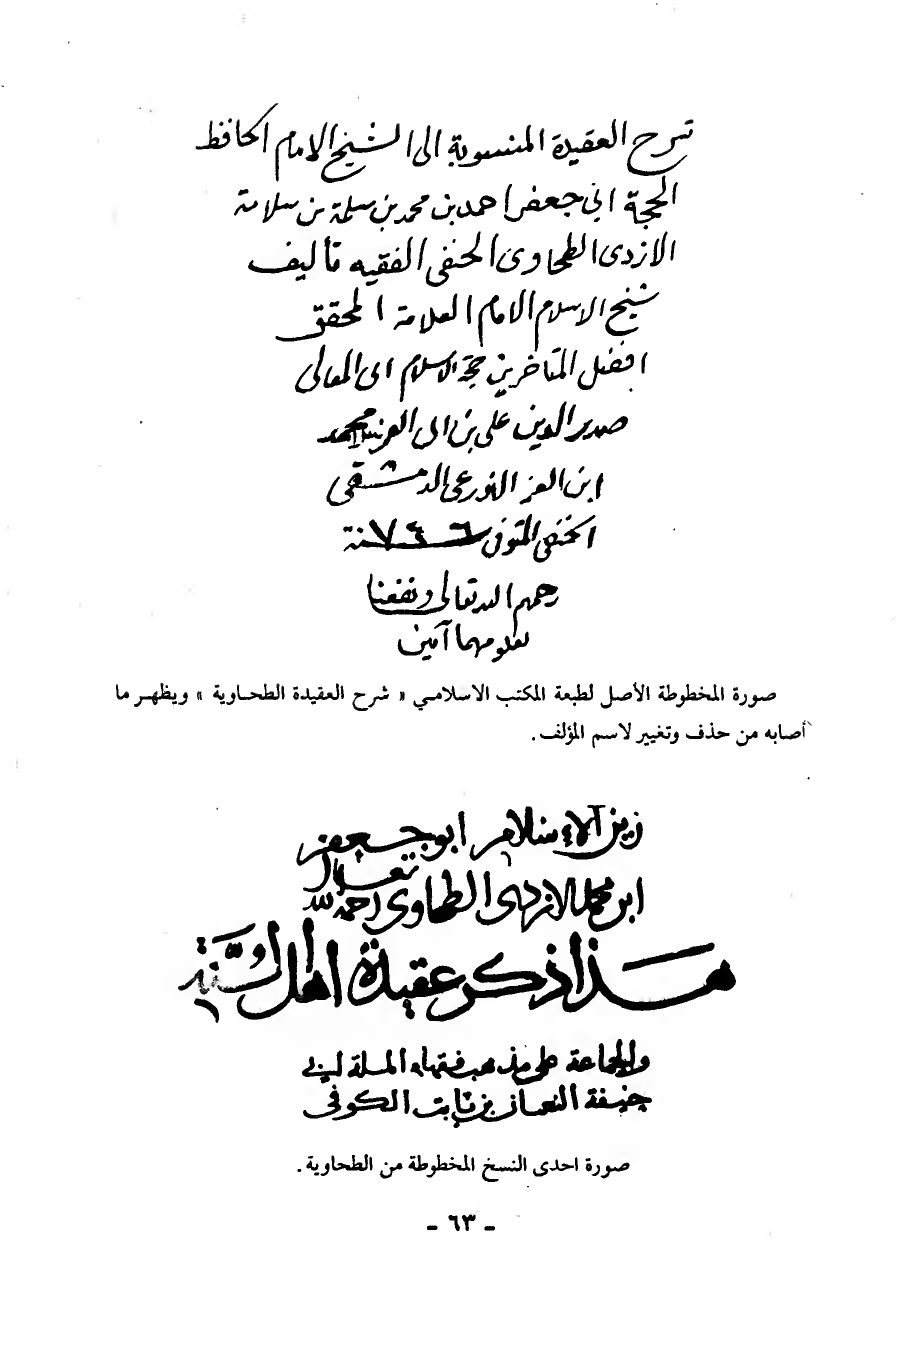 شرح العقيدة المنسوبة الى الشيخ الامام الحافظ
الحجة ابي جعفر احمد بن محمد بن سلمة بن سلامة
الازدى الطحاوى الحنفى الفقيه تأليف
شيخ الاسلام الامام العلامة المحقق
افضل المتاخرين حجة الاسلام ابى المعالى
صدر الدين على بن ابى العز محمد
ابن العز الاذرعى الدمشقى
الحنفى المتوفى سنة ٧٤٦
رحمهم الله تعالى ونفعنا
بعلومهما آمين
صورة المخطوطة الأصل لطبعة المكتب الاسلامي « شرح العقيدة الطحاوية » ويظهر ما
أصابه من حذف وتغيير لاسم المؤلف .
زين الاسلام ابو جعفر
ابن محمد الازدى الطحاوى رحمه الله تعالى
هذا ذكر عقيدة اهل السنة
والجماعة على مذهب فقهاء الملة ابي
حنيفة النعمان بن ثابت الكوفي
صورة احدى النسخ المخطوطة من الطحاوية .
- ٦٣ -